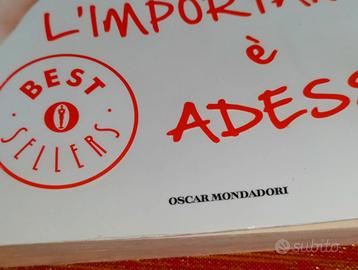 L'IMPORTAN
è
ADESS
BEST
SELLERS
OSCAR MONDADORI
subito